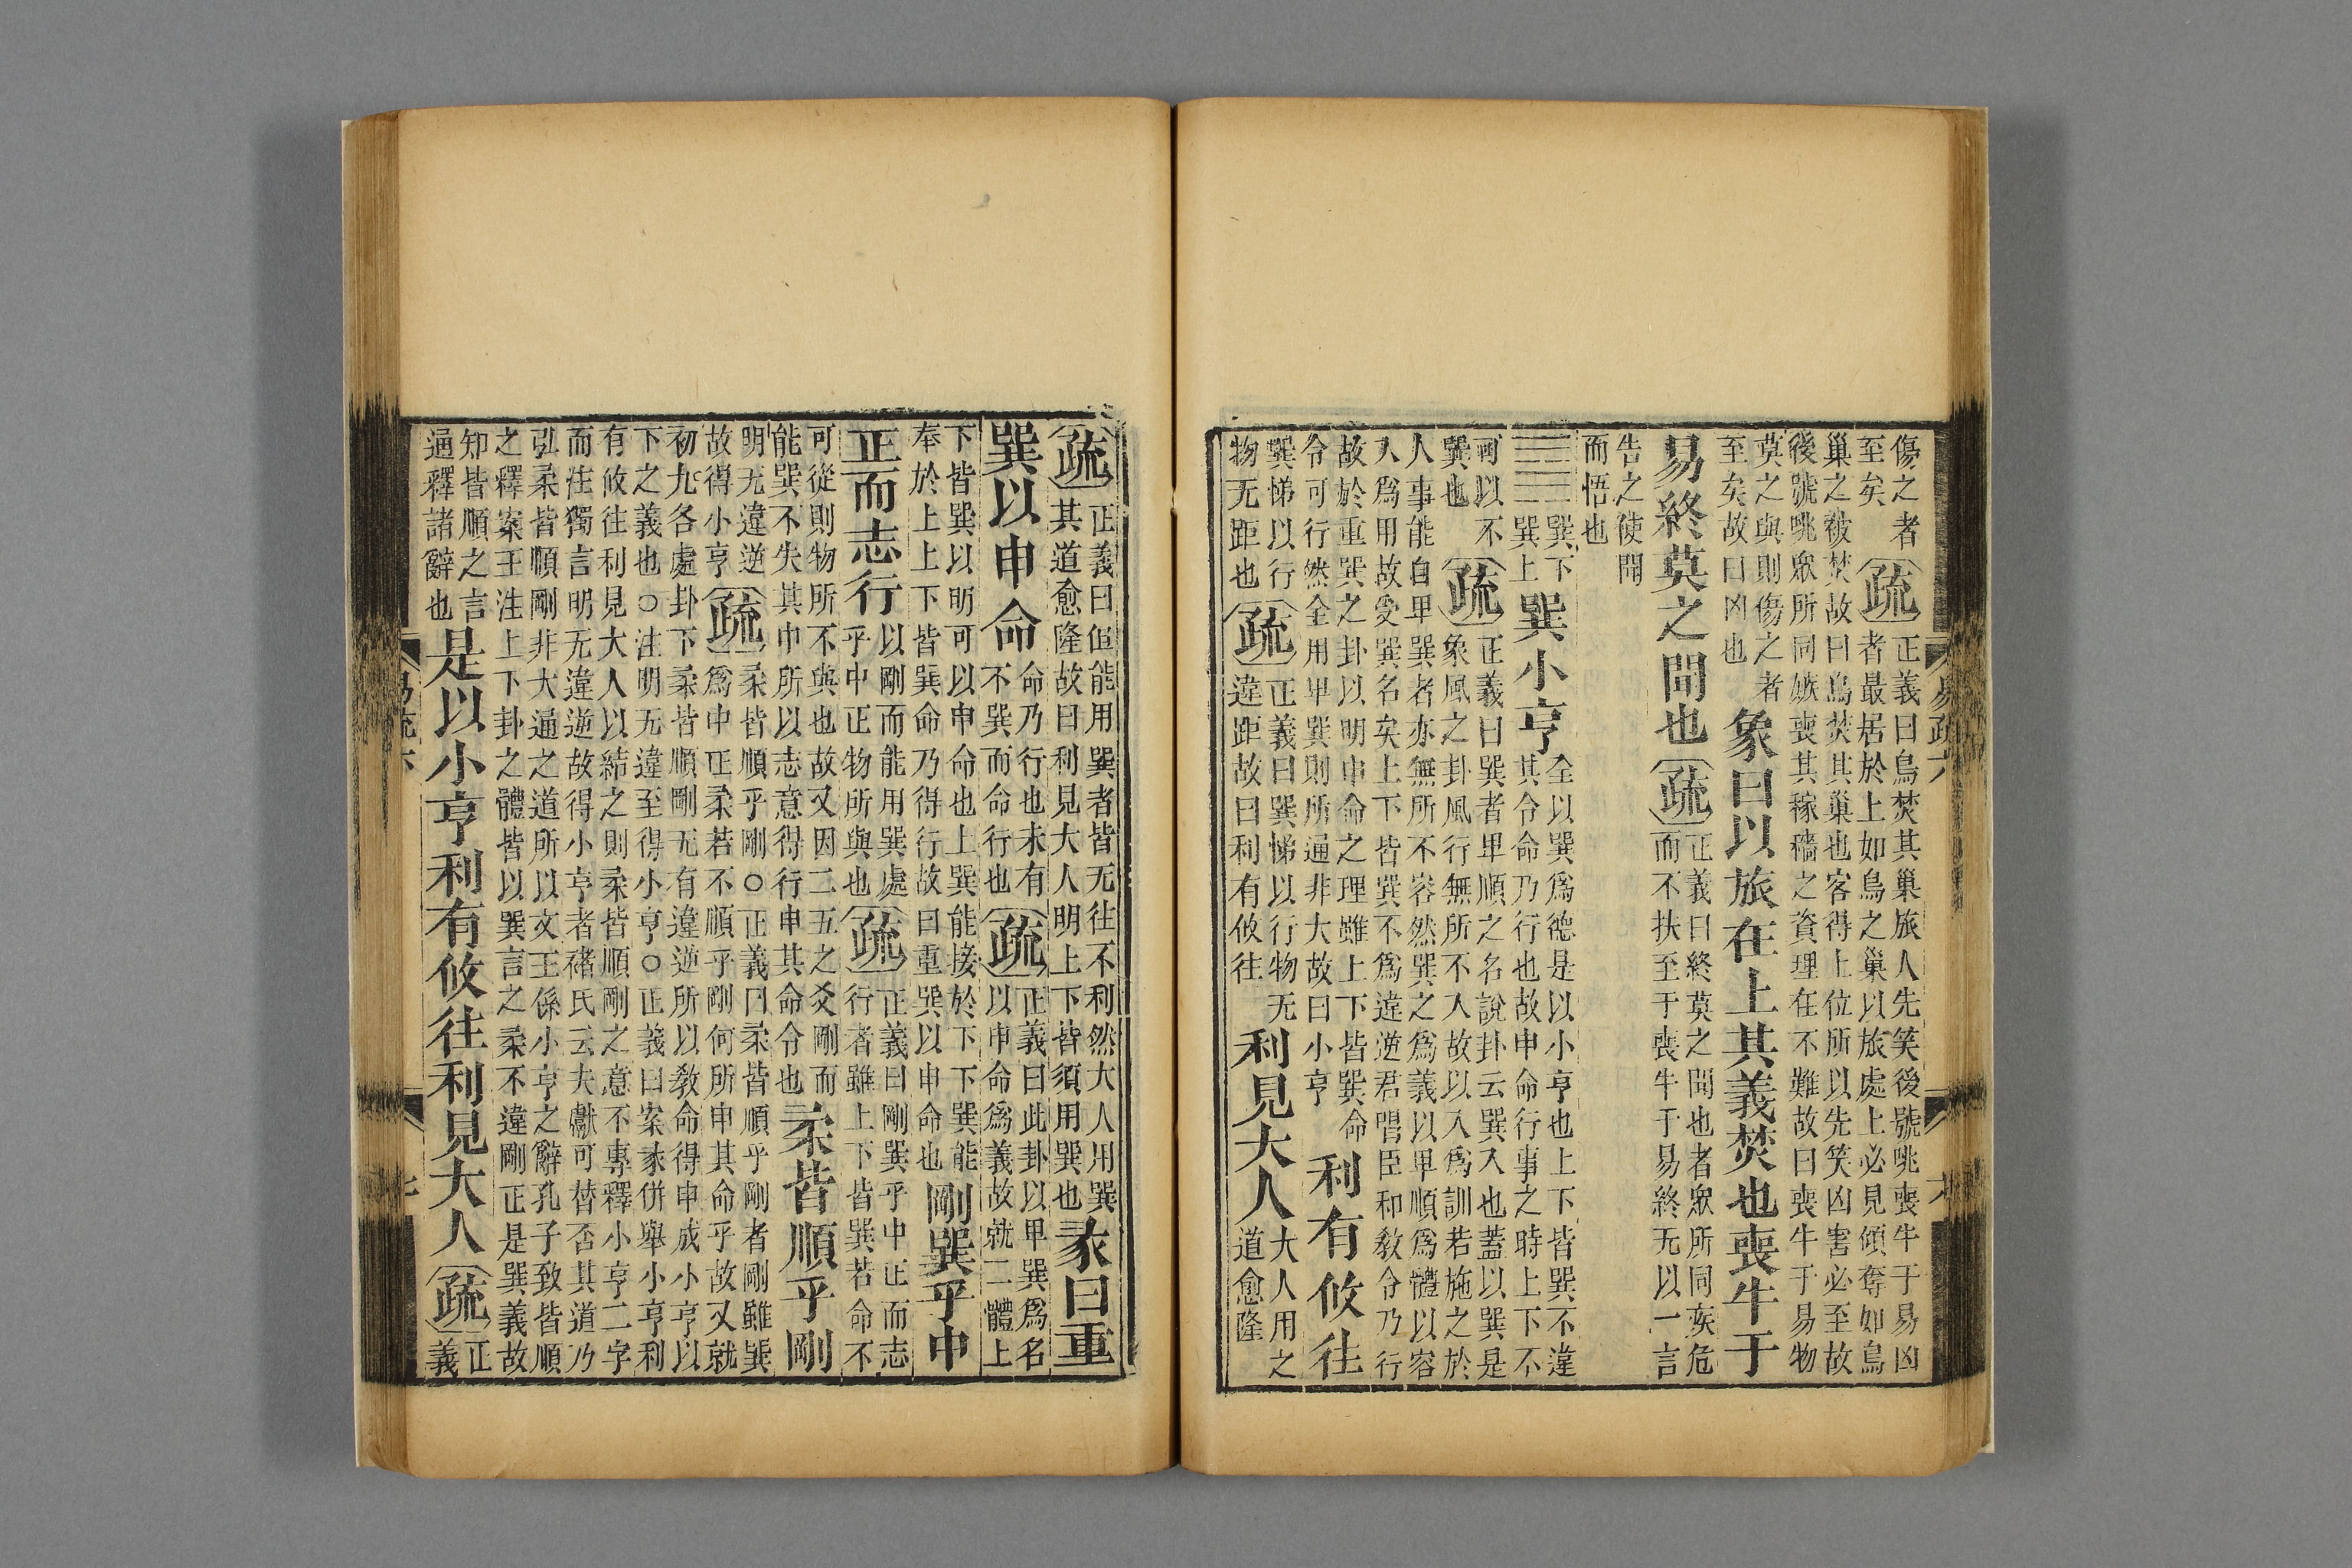 傷之者
至矣
疏
正義曰鳥焚其巢旅人先笑後號咷喪牛于易凶
者最居於上如鳥之巢以旅處上必見傾奪如鳥
巢之被焚故曰鳥焚其巢也客得上位所以先笑凶害必至故
後號咷眾所同嫉喪其稼穡之資理在不難故曰喪牛于易物
莫之與則傷之者
至矣故曰凶也
象曰以旅在上其義焚也喪牛于
易終莫之聞也疏
正義曰終莫之聞也者眾所同疾危
而不扶至于喪牛于易終无以一言
告之使聞
而悟也
䷸
巽下
巽上
巽小亨
全以巽爲德是以小亨也上下皆巽不違
其令命乃行也故申命行事之時上下不
可以不
巽也
疏
正義曰巽者卑順之名說卦云巽入也蓋以巽是
象風之卦風行無所不入故以入爲訓若施之於
人事能自卑巽者亦無所不容然巽之爲義以卑順爲體以容
入爲用故受巽名矣上下皆巽不爲違逆君唱臣和敎令乃行
故於重巽之卦以明申命之理雖上下皆巽命
令可行然全用卑巽則所通非大故曰小亨
利有攸往
巽悌以行
物无距也
疏
正義曰巽悌以行物无
違距故曰利有攸往
利見大人
大人用之
道愈隆
疏
正義曰但能用巽者皆无往不利然大人用巽
其道愈隆故曰利見大人明上下皆須用巽也
彖曰重
巽以申命
命乃行也未有
不巽而命行也
疏
正義曰此卦以卑巽爲名
以申命爲義故就二體上
下皆巽以明可以申命也上巽能接於下下巽能
奉於上上下皆巽命乃得行故曰重巽以申命也
剛巽乎中
正而志行
以剛而能用巽處
乎中正物所與也
疏
正義曰剛巽乎中正而志
行者雖上下皆巽若命不
可從則物所不與也故又因二五之爻剛而
能巽不失其中所以志意得行申其命令也
柔皆順乎剛
明无違逆
故得小亨
疏
柔皆順乎剛○正義曰柔皆順乎剛者剛雖巽
爲中正柔若不順乎剛何所申其命乎故又就
初九各處卦下柔皆順剛无有違逆所以敎命得申成小亨以
下之義也○注明无違至得小亨○正義曰案彖併舉小亨利
有攸往利見大人以結之則柔皆順剛之意不專釋小亨二字
而注獨言明无違逆故得小亨者禇氏云夫獻可替否其道乃
弘柔皆順剛非大通之道所以文王係小亨之辭孔子致皆順
之釋案王注上下卦之體皆以巽言之柔不違剛正是巽義故
知皆順之言
通釋諸辭也
是以小亨利有攸往利見大人疏
正
義